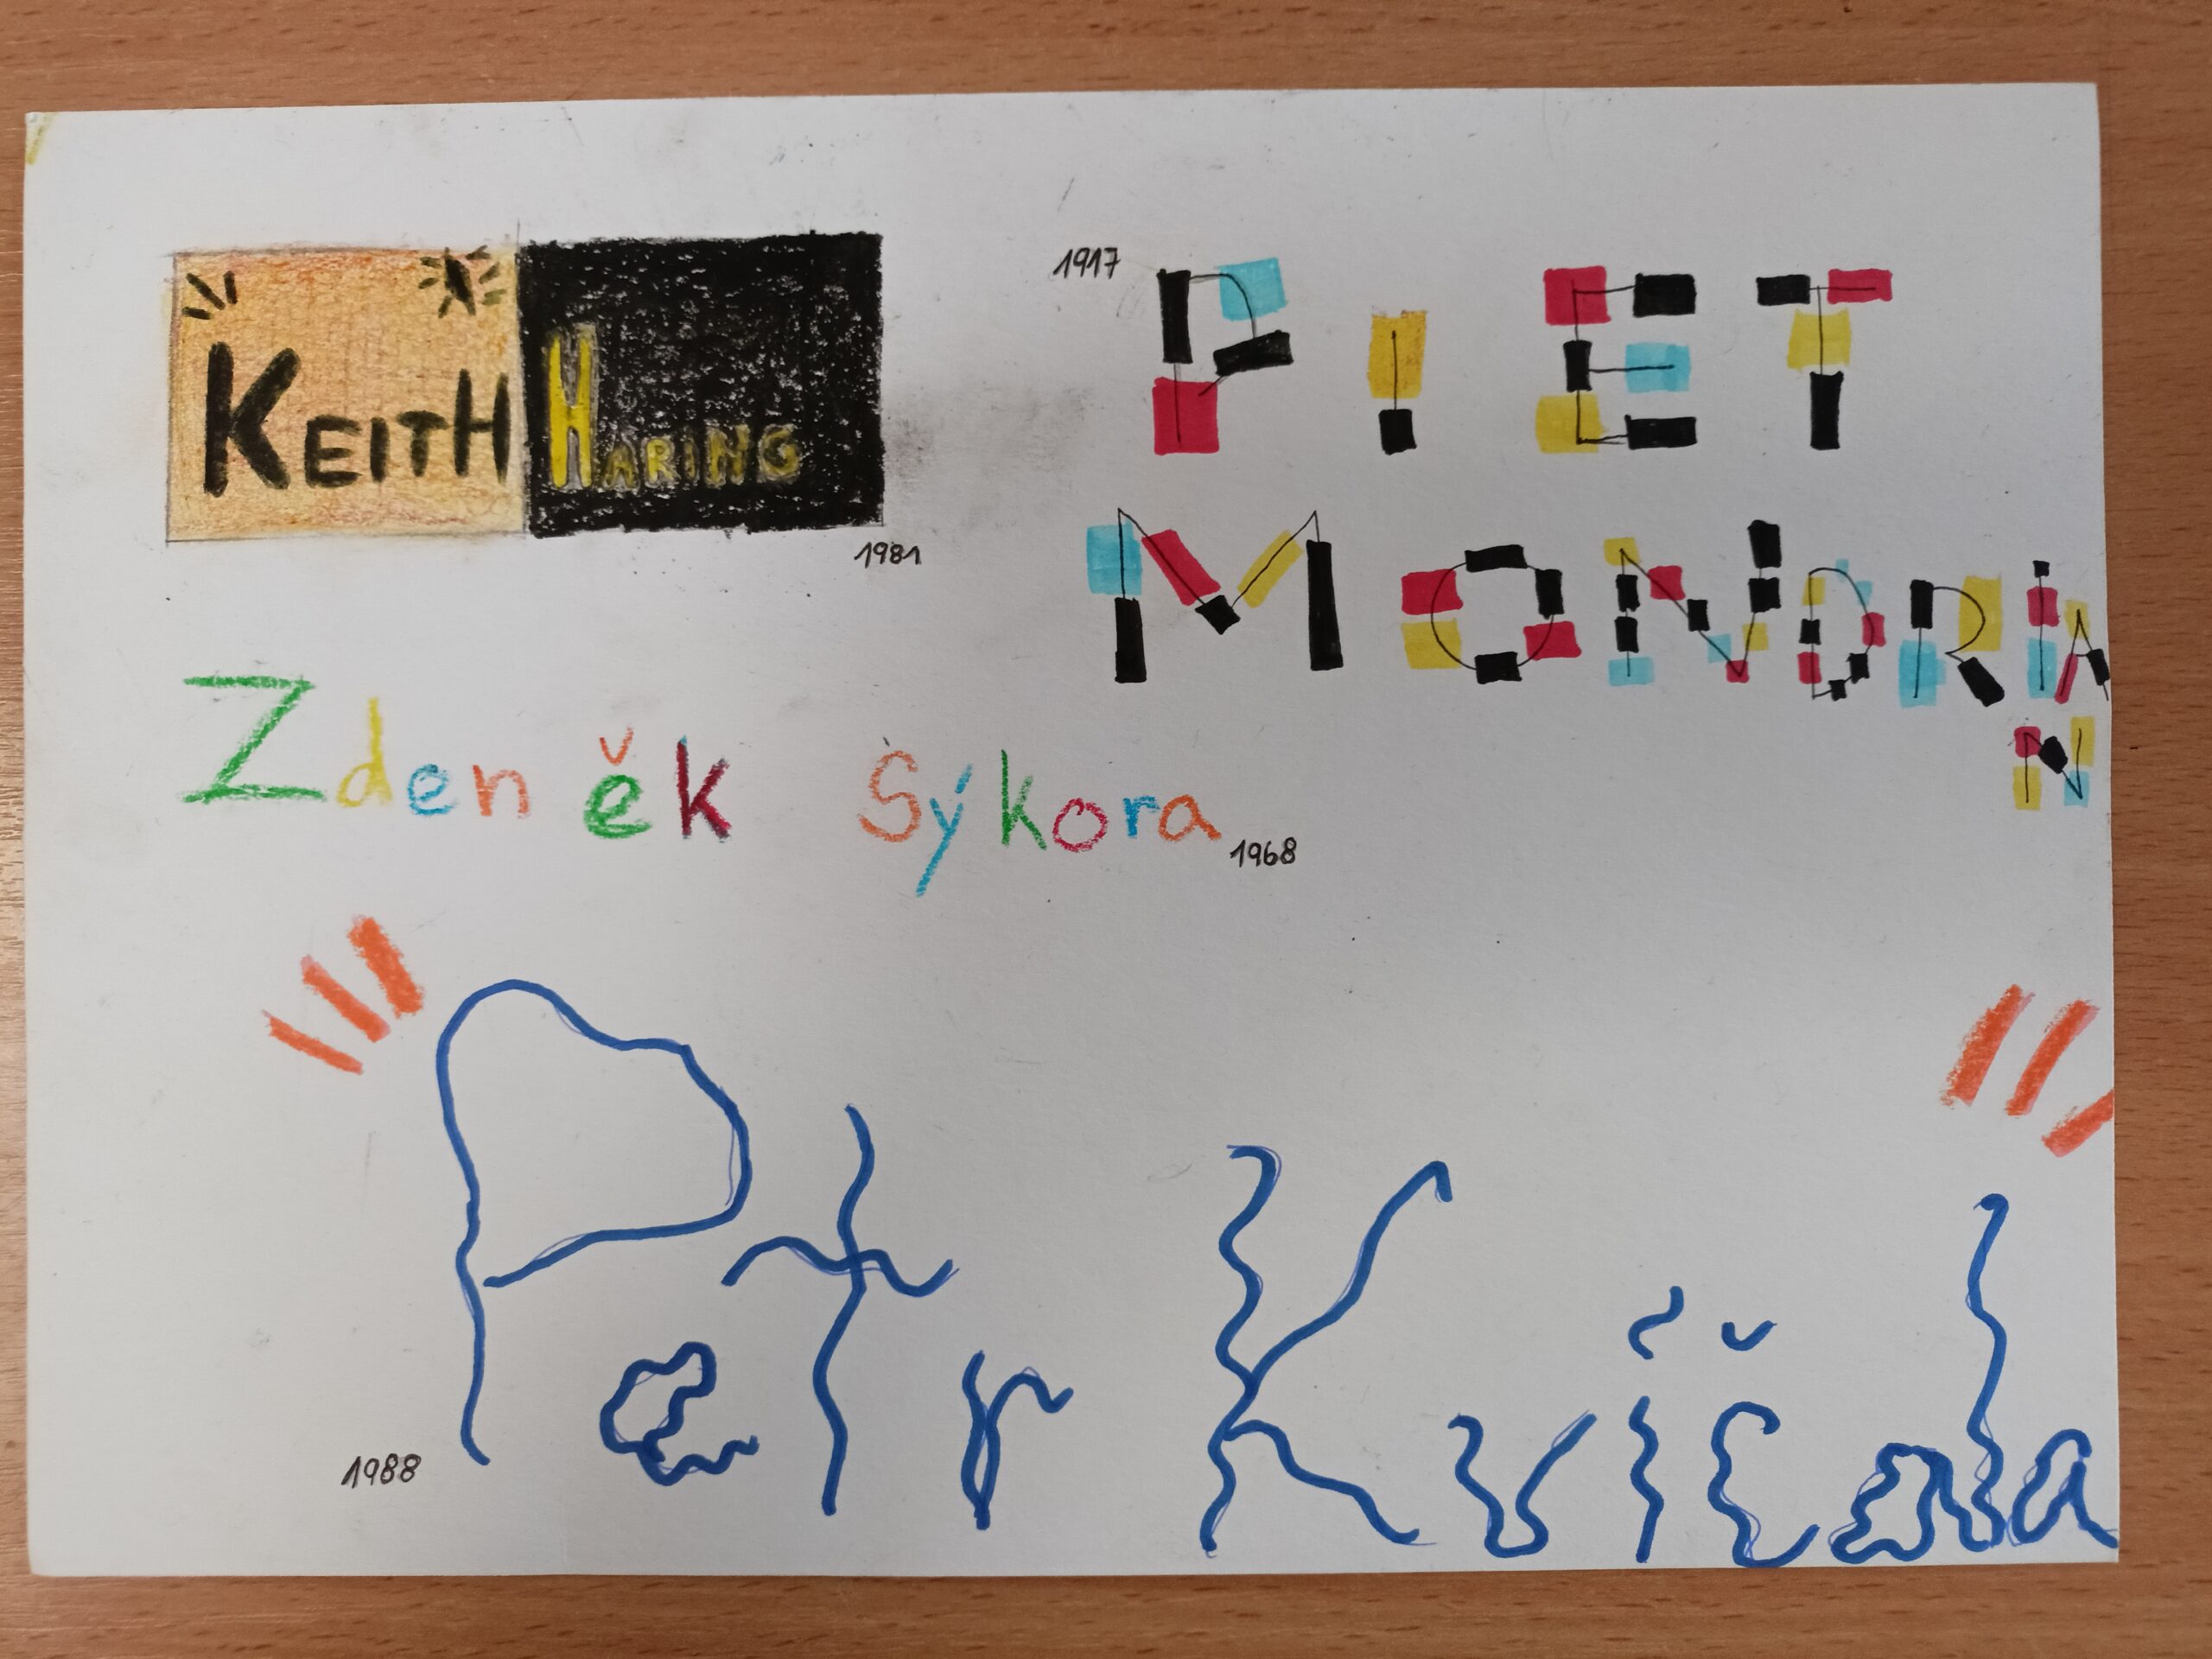 KEITH HARING
1981
1917
PIET
MONDRIA
N
Zdeněk Sýkora
1968
Petr Kvíčala
1988